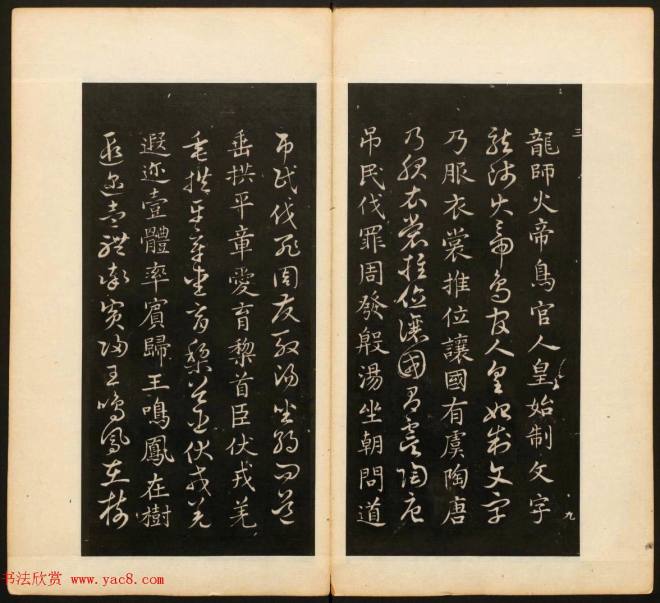 三
龍師火帝鳥官人皇始制文字
龍師火帝鳥官人皇始制文字
乃服衣裳推位讓國有虞陶唐
乃服衣裳推位讓國有虞陶唐
吊民伐罪周發殷湯坐朝問道
九
吊民伐罪周發殷湯坐朝問道
垂拱平章愛育黎首臣伏戎羌
垂拱平章愛育黎首臣伏戎羌
遐迩壹體率賓歸王鳴鳳在樹
遐迩壹體率賓歸王鳴鳳在樹
书法欣赏 www.yac8.com